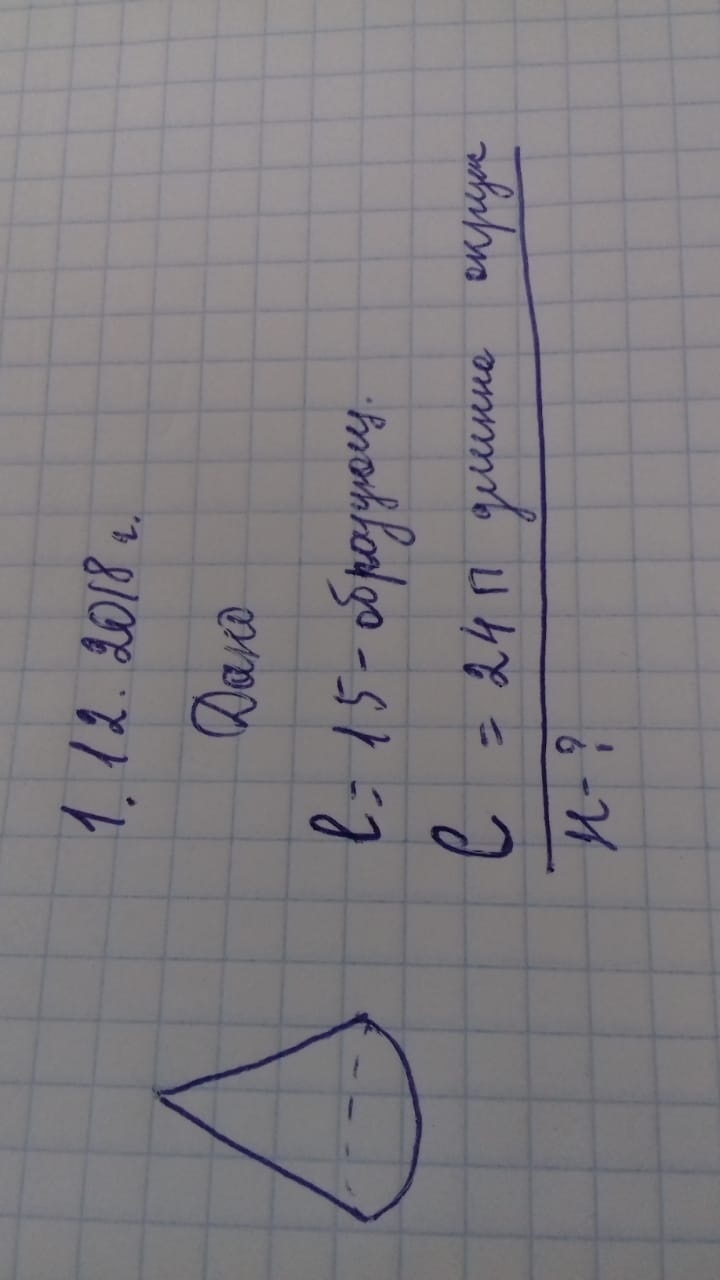 1.12.2018 г.
Дано
l = 15 - образующ.
C = 24 П длинна окруж
H - ?